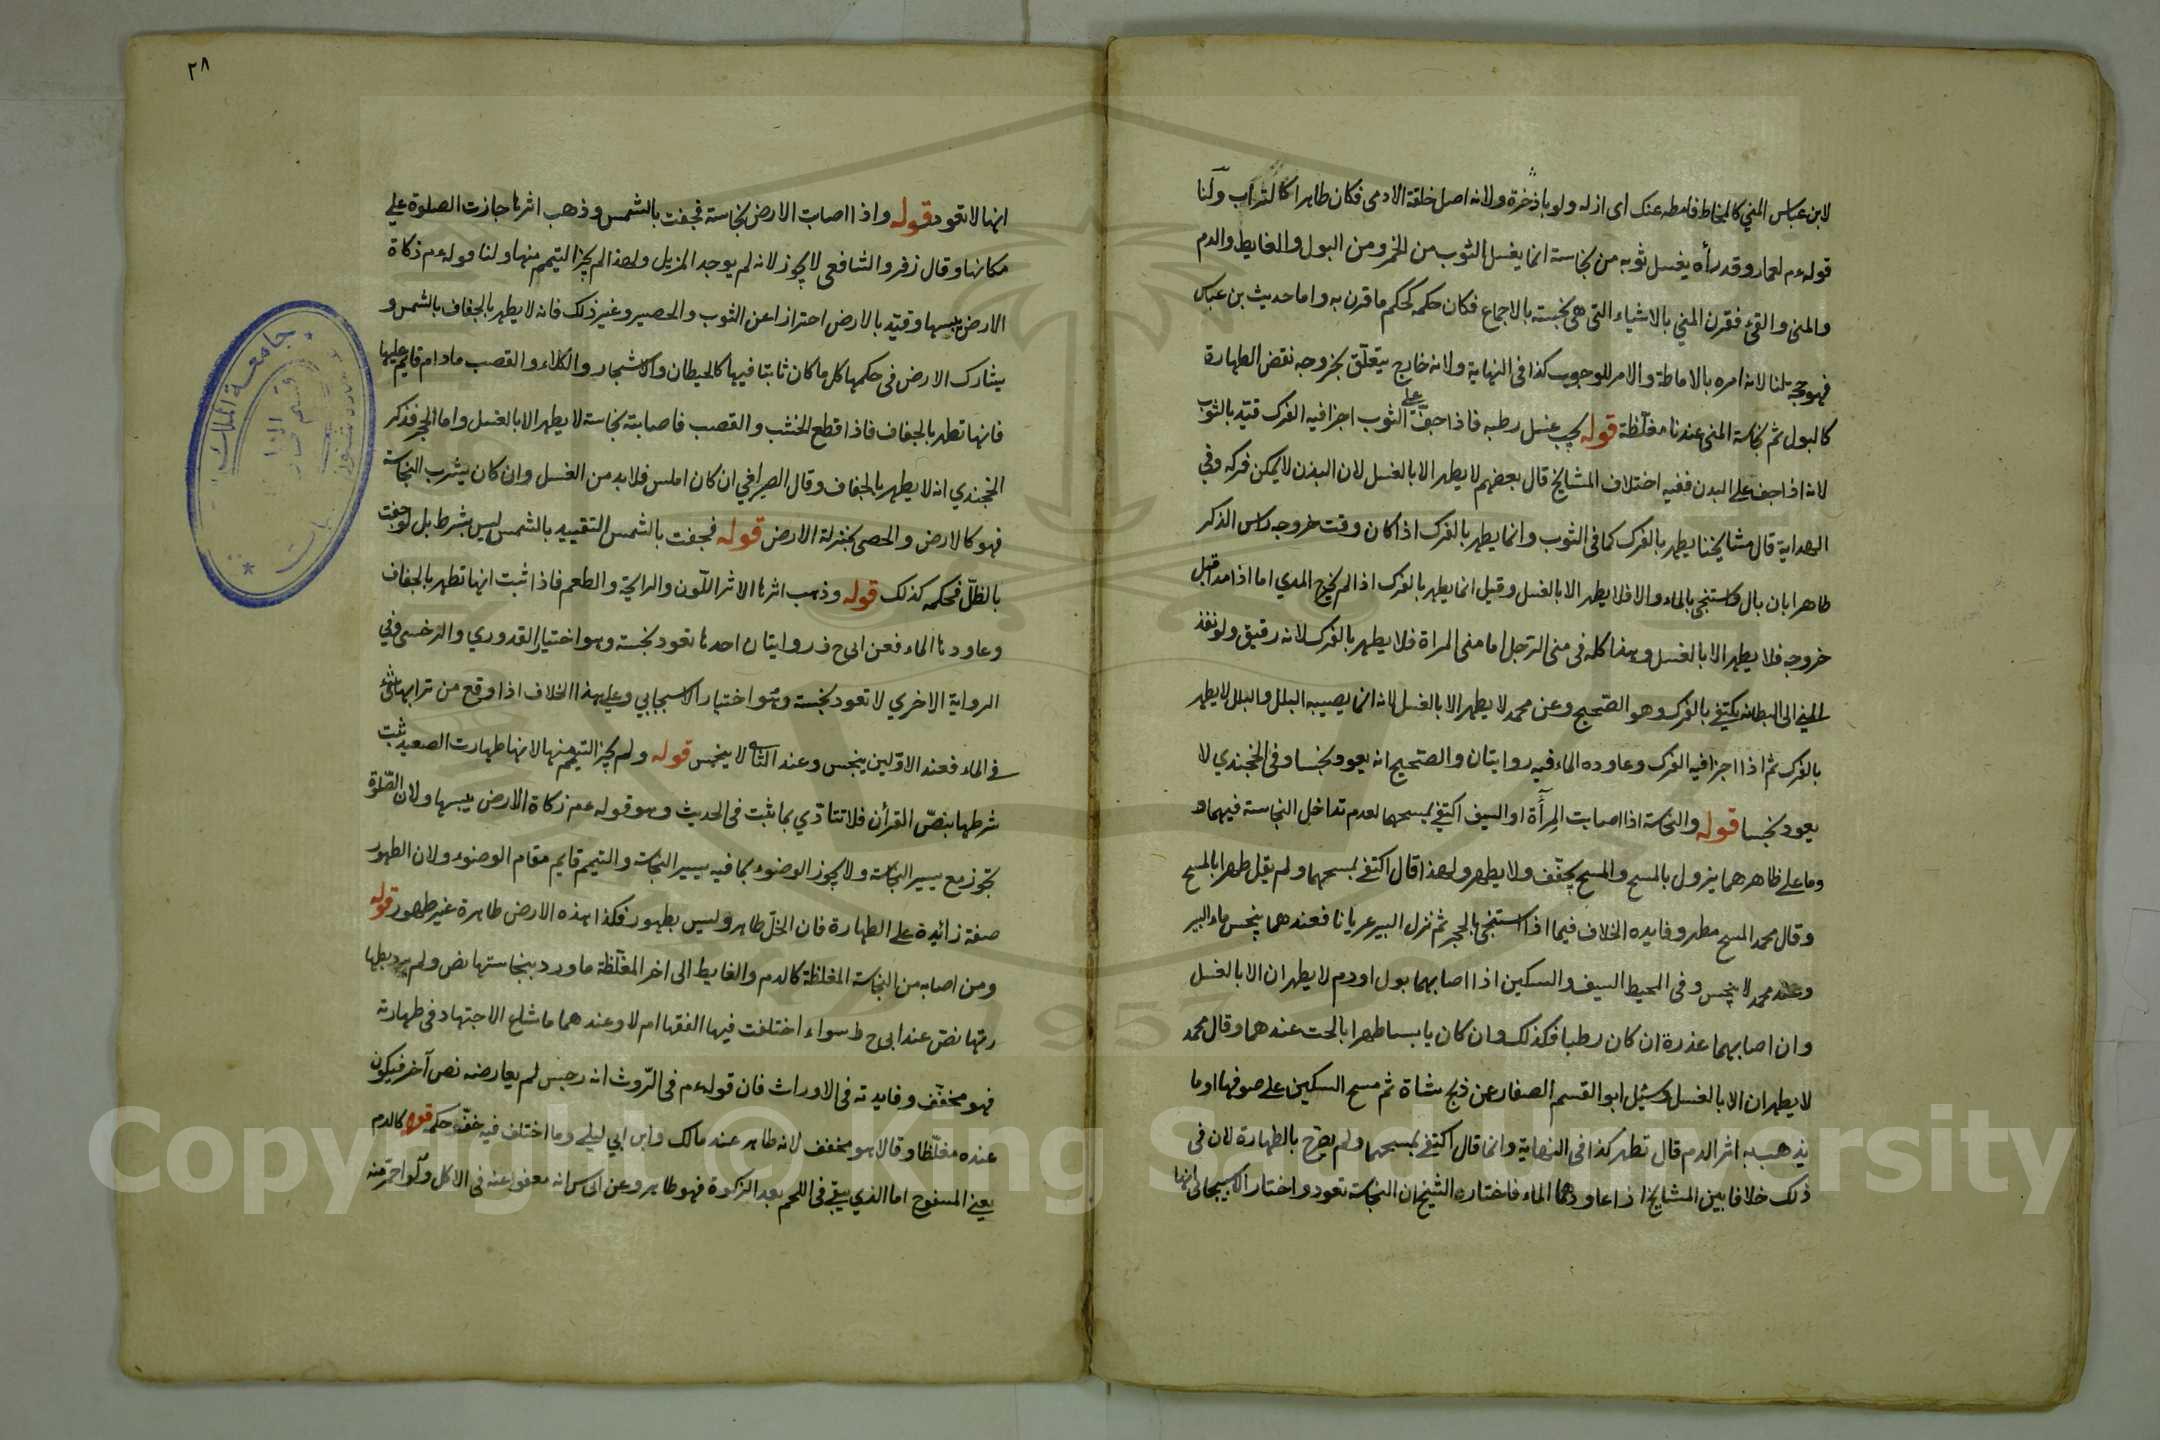 لابن عباس المني كالمخاط فامطه عنك اى ازله ولو باذخرة ولانه اصل خلقة الادمى فكان طاهرا كالتراب ولنا
قوله ءم لعمار وقد رأه يغسل ثوبه من نجاسة انما يغسل الثوب من الخمر ومن البول والغايط والدم
والمنى والقئ فقرن المني بالاشياء التى هى نجسته بالاجماع فكان حكمه كحكم ما قرن به واما حديث بن عباس
فهو حجة لنا لانه امره بالاماطة والامر للوجوب كذا فى النهاية ولانه خارج يتعلق بخروجه نقض الطهارة
كالبول ثم نجاسة المنى عندنا مغلّظة قوله يجب غسل رطبه فاذا جفّ على الثوب اجزا فيه الفرك قيّد بالثوب
لانه اذا جف على البدن ففيه اختلاف المشايخ قال بعضهم لا يطهر الا بالغسل لان البدن لا يمكن فركه وفي
الهداية قال مشايخنا يطهر بالفرك كما فى الثوب وانما يطهر بالفرك اذا كان وقت خروجه راس الذكر
طاهرا بان بال واستنجى بالماء والا فلا يطهر الا بالغسل وقيل انما يطهر بالفرك اذا لم يخرج المدي اما اذا مدا قبل
خروجه فلا يطهر الا بالغسل وهذا كله فى منى الرجل اما منى المراة فلا يطهر بالفرك لانه رقيق ولو نفذ
المني الى البطانه يكتفي بالفرك وهو الصحيح وعن محمد لا يطهر الا بالغسل لانه انما يصيبه البلل والبلل لا يطهر
بالفرك ثم اذا اجزا فيه الفرك وعاوده الماء فيه روايتان والصحيح انه يعود نجسا وفى الخجندي لا
يعود نجسا قوله والنجاسة اذا اصابت المرأة او السيف اكتفي بمسحهما لعدم تداخل النجاسة فيهما
وما على ظاهرهما يزول بالمسح والمسح يجفّف ولا يطهر ولهذا قال اكتفي بمسحهما ولم يقل طهرا بالمسح
وقال محمد المسح مطهر وفايده الخلاف فيما اذا استنجى بالحجر ثم نزل البير عريانا فعندهما ينجس ماء البير
وعند محمد لا ينجس وفى المحيط السيف والسكين اذا اصابهما بول او دم لا يطهران الا بالغسل
وان اصابهما عذرة ان كان رطبا فكذلك وان كان يابسا طهرا بالحت عندهما وقال محمد
لا يطهران الا بالغسل وسئل ابو القسم الصفار عن ذبح شاة ثم مسح السكين على صوفها او ما
يذهب به اثر الدم قال تطهر كذا فى النهاية وانما قال اكتفي بمسحهما ولم يصرّح بالطهارة لان فى
ذلك خلافا بين المشايخ اذا عاودهما الماء فاختاره الشيخ ان النجاسة تعود واختار الاسبيجابى انها
٢٨
انها لا تعود قوله واذا اصابت الارض نجاسة فجفت بالشمس وذهب اثرها جازت الصلوة على
مكانها وقال زفر والشافعى لا يجوز لانه لم يوجد المزيل ولهذا لم يجز التيمم منها ولنا قوله ءم ذكاة
الارض يبسها وقيّد بالارض احترازا عن الثوب والحصير وغير ذلك فانه لا يطهر بالجفاف بالشمس و
يشارك الارض فى حكمها كل ما كان ثابتا فيها كالحيطان والاشجار والكلاء والقصب مادام قايم عليها
فانها تطهر بالجفاف فاذا قطع الخشب والقصب فاصابته نجاسة لا يطهر الا بالغسل واما الحجر فذكر
الخجندي انه لا يطهر بالجفاف وقال الصيرافي ان كان املس فلا بد من الغسل وان كان يشرب النجاسة
فهو كالارض والحصى بمنزلة الارض قوله فجفت بالشمس التقييد بالشمس ليس بشرط بل لو جفت
بالظلّ فحكمه كذلك قوله وذهب اثرها الاثر اللّون والرايحة والطعم فاذا ثبت انها تطهر بالجفاف
وعاودها الماء فعن ابى ح فر روايتان احدها تعود نجسة وهو اختيار القدوري والسرخسى وفي
الرواية الاخري لا تعود نجسة وهو اختيار الاسبيجابي وعلى هذا الخلاف اذا وقع من ترابها شئ
فى الماء فعند الاوّلين ينجس وعند الثانى لا ينجس قوله ولم يجز التيمم منها لانها طهارت الصعيد ثبت
شرطها بنصّ القرأن فلا تتادّي بما ثبت فى الحديث وهو قوله عم زكاة الارض يبسها ولان الصّلوة
تجوز مع يسير النجاسة ولا يجوز الوضوء بما فيه يسير النجاسة والتيمم قايم مقام الوضوء ولان الطهور
صفة زائدة على الطهارة فان الخلّ طاهر وليس بطهور فكذا هذه الارض طاهرة غير طهور قوله
ومن اصابه من النجاسة المغلظة كالدم والغايط الى اخر المغلّظة ما ورد بنجاستها نص ولم يرد بطها
رتها نص عند ابى ح ط سواء اختلفت فيها الفقها ام لا وعندهما ما شاع الاجتهاد فى طهارته
فهو مخفّف وفايدته فى الاوراث فان قوله ءم فى الرّوث انه رجس لم يعارضه نص آخر فيكون
عنده مغلّظا وقالا هو مخفف لانه طاهر عند مالك وابن ابي ليلى وما اختلف فيه خفّف حكمه قوله كالدم
يعني المسفوح اما الذي يبقى فى اللحم بعد الزكوة فهو طاهر وعن ابى س انه معفوا عنه فى الاكل ولو احمرّ منه
جامعة الملك
Copyright © King Saud University
1957